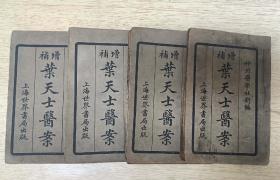 增補
葉天士醫案
上海世界書局出版
增補
葉天士醫案
上海世界書局出版
增補
葉天士醫案
上海世界書局出版
神州醫學社新編
增補
葉天士醫案
上海世界書局出版